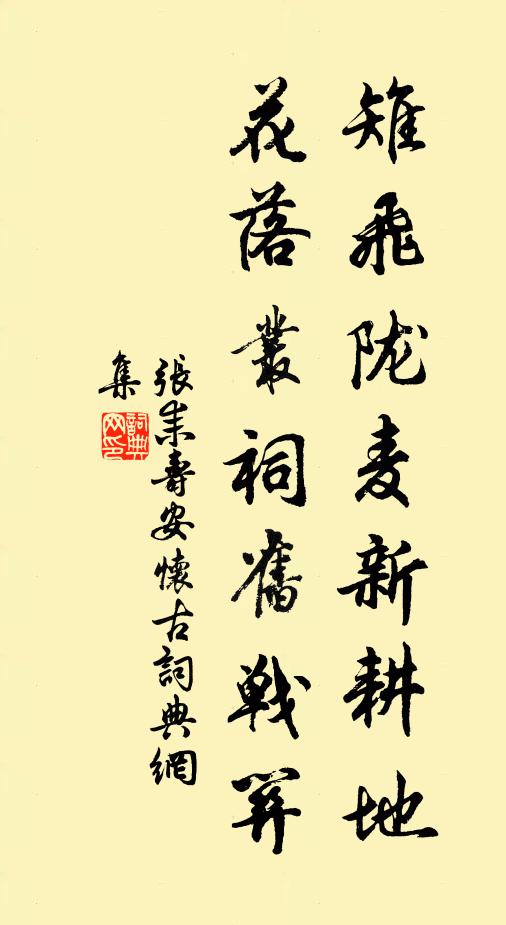 雉飛陇麦新耕地
花落叢祠舊戦
張耒壽安懷古詞典網
集
詞典
网印